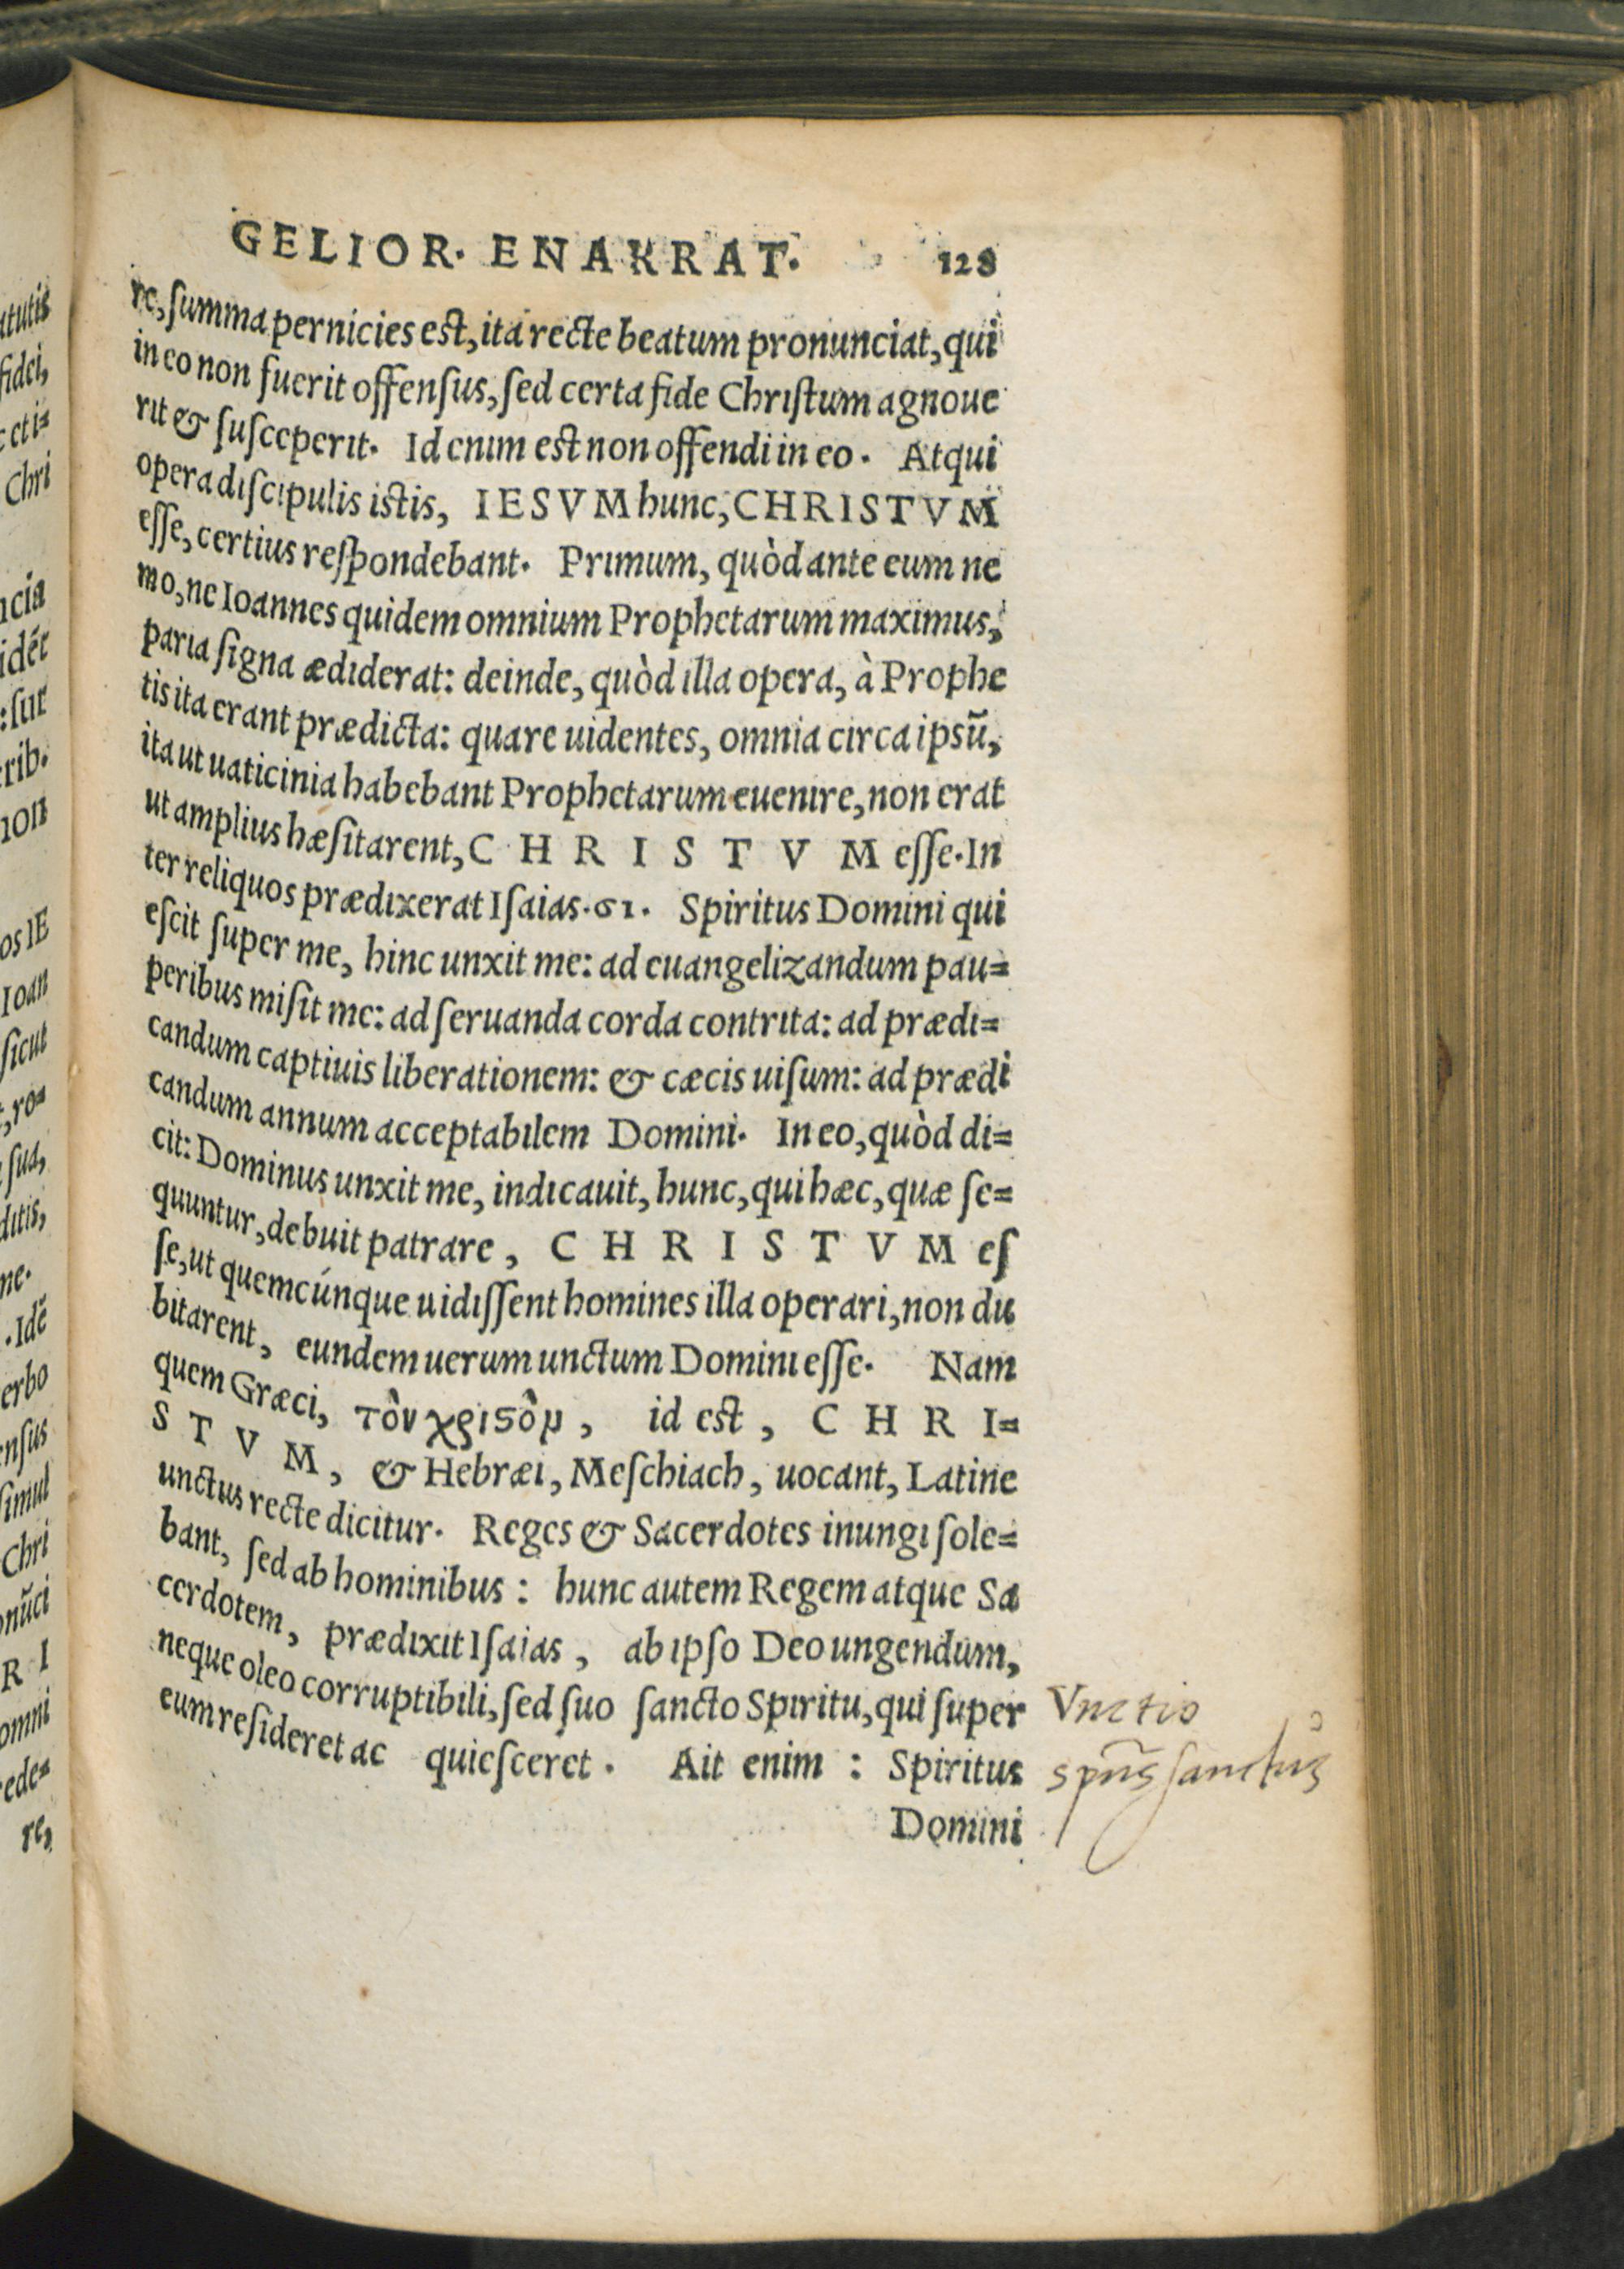 GELIOR. ENARRAT. 128
re, ſumma pernicies eſt, ita recte beatum pronunciat, qui
in eo non fuerit offenſus, ſed certa fide Chriſtum agnoue
rit & ſuſceperit. Id enim eſt non offendi in eo. Atqui
opera diſcipulis iſtis, IESVM hunc, CHRISTVM
eſſe, certius reſpondebant. Primum, quòd ante eum ne
mo, ne Ioannes quidem omnium Prophetarum maximus,
paria ſigna ædiderat: deinde, quòd illa opera, à Prophe
tis ita erant prædicta: quare uidentes, omnia circa ipsũ,
ita ut uaticinia habebant Prophetarum euenire, non erat
ut amplius hæſitarent, CHRISTVM eſſe. In
ter reliquos prædixerat Iſaias. 61. Spiritus Domini qui
eſcit ſuper me, hinc unxit me: ad euangelizandum pau=
peribus miſit me: ad ſeruanda corda contrita: ad prædi=
candum captiuis liberationem: & cæcis uiſum: ad prædi
candum annum acceptabilem Domini. In eo, quòd di=
cit: Dominus unxit me, indicauit, hunc, qui hæc, quæ ſe=
quuntur, debuit patrare, CHRISTVM eſ
ſe, ut quemcúnque uidiſſent homines illa operari, non du
bitarent, eundem uerum unctum Domini eſſe. Nam
quem Græci, τὸν χριστὸν, id eſt, CHRI=
STVM, & Hebræi, Meſchiach, uocant, Latine
unctus recte dicitur. Reges & Sacerdotes inungi ſole=
bant, ſed ab hominibus: hunc autem Regem atque Sa
cerdotem, prædixit Iſaias, ab ipſo Deo ungendum,
neque oleo corruptibili, ſed ſuo ſancto Spiritu, qui ſuper
eum reſideret ac quieſceret. Ait enim: Spiritus
Domini
Vnctio
spũs ſanctus